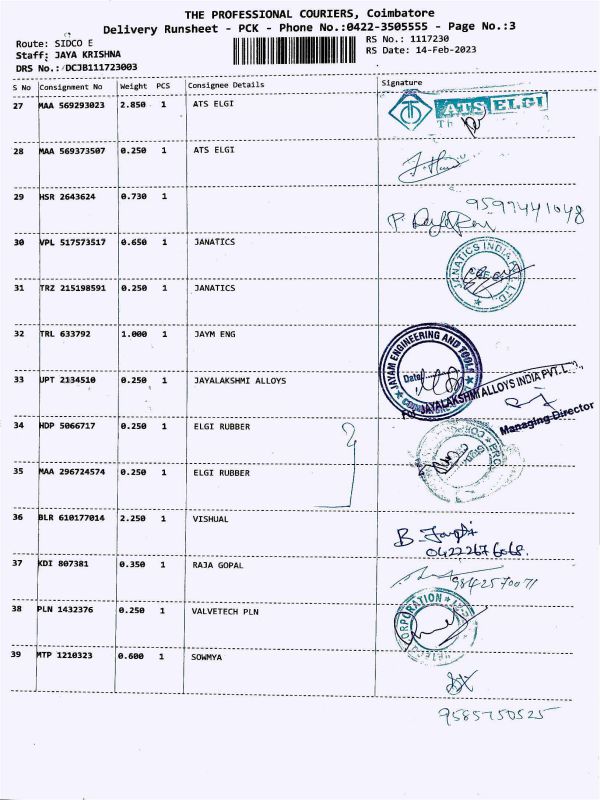 THE PROFESSIONAL COURIERS, Coimbatore
Delivery Runsheet - PCK - Phone No.:0422-3505555 - Page No.:3
Route: SIDCO E
RS No.: 1117230
Staff: JAYA KRISHNA
RS Date: 14-Feb-2023
DRS No.: DCJB111723003
S No Consignment No Weight PCS Consignee Details Signature
27 MAA 569293023 2.850 1 ATS ELGI
ATS ELGI
28 MAA 569373507 0.250 1 ATS ELGI
29 HSR 2643624 0.730 1
9597441048
30 VPL 517573517 0.650 1 JANATICS
JANATICS INDIA
LTD.
31 TRZ 215198591 0.250 1 JANATICS
32 TRL 633792 1.000 1 JAYM ENG
JAYAM ENGINEERING AND TOOLS
Date
33 UPT 2134510 0.250 1 JAYALAKSHMI ALLOYS
For JAYALAKSHMI ALLOYS INDIA PVT. L
Managing Director
34 HDP 5066717 0.250 1 ELGI RUBBER
35 MAA 296724574 0.250 1 ELGI RUBBER
36 BLR 610177014 2.250 1 VISHUAL
04222676068.
37 KDI 807381 0.350 1 RAJA GOPAL
9842570071
38 PLN 1432376 0.250 1 VALVETECH PLN
CORPORATION
39 MTP 1210323 0.600 1 SOWMYA
9585750525